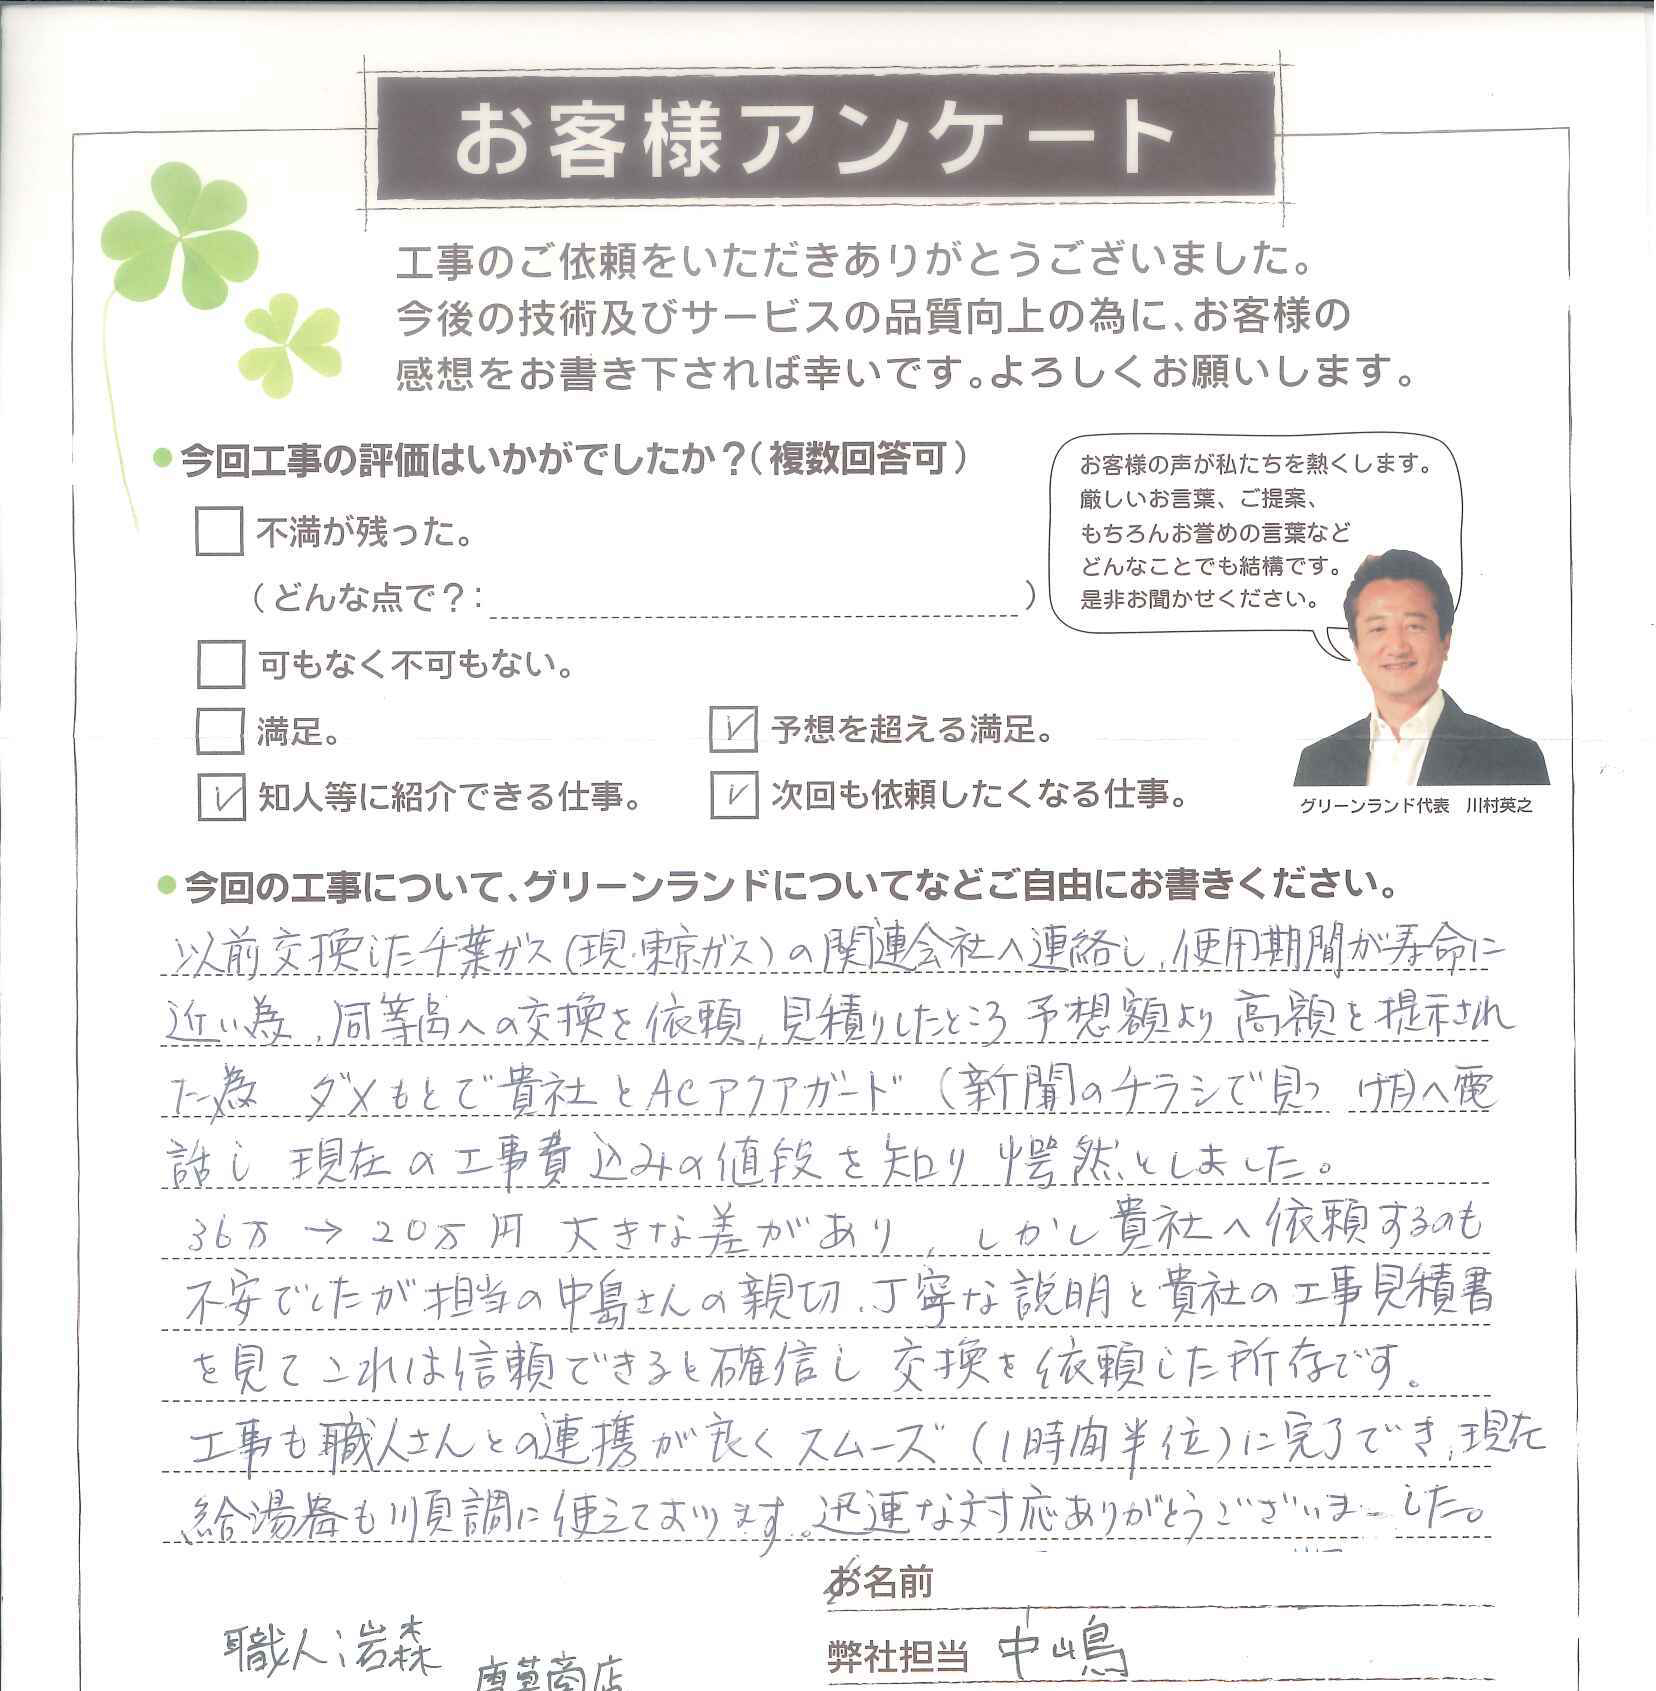 お客様アンケート
工事のご依頼をいただきありがとうございました。
今後の技術及びサービスの品質向上の為に、お客様の
感想をお書き下されば幸いです。よろしくお願いします。
●今回工事の評価はいかがでしたか？（複数回答可）
不満が残った。
（どんな点で？：　　　　）
可もなく不可もない。
満足。
予想を超える満足。
知人等に紹介できる仕事。
次回も依頼したくなる仕事。
お客様の声が私たちを熱くします。
厳しいお言葉、ご提案、
もちろんお誉めの言葉など
どんなことでも結構です。
是非お聞かせください。
グリーンランド代表　川村英之
●今回の工事について、グリーンランドについてなどご自由にお書きください。
以前交換した千葉ガス（現・東京ガス）の関連会社へ連絡し、使用期間が寿命に
近い為、同等品への交換を依頼、見積りしたところ予想額より高額を提示され
た為　ダメもとで貴社とACアクアガード（新聞のチラシで見つ　へ電
話し　現在の工事費込みの値段を知り愕然としました。
36万→20万円　大きな差があり、しかし貴社へ依頼するのも
不安でしたが担当の中島さんの親切、丁寧な説明と貴社の工事見積書
を見てこれは信頼できると確信し　交換を依頼した所存です。
工事も職人さんとの連携が良くスムーズ（1時間半位）に完了でき、現在
給湯器も順調に使えております。迅速な対応ありがとうございました。
お名前
弊社担当　中嶋
職人：岩森
商店